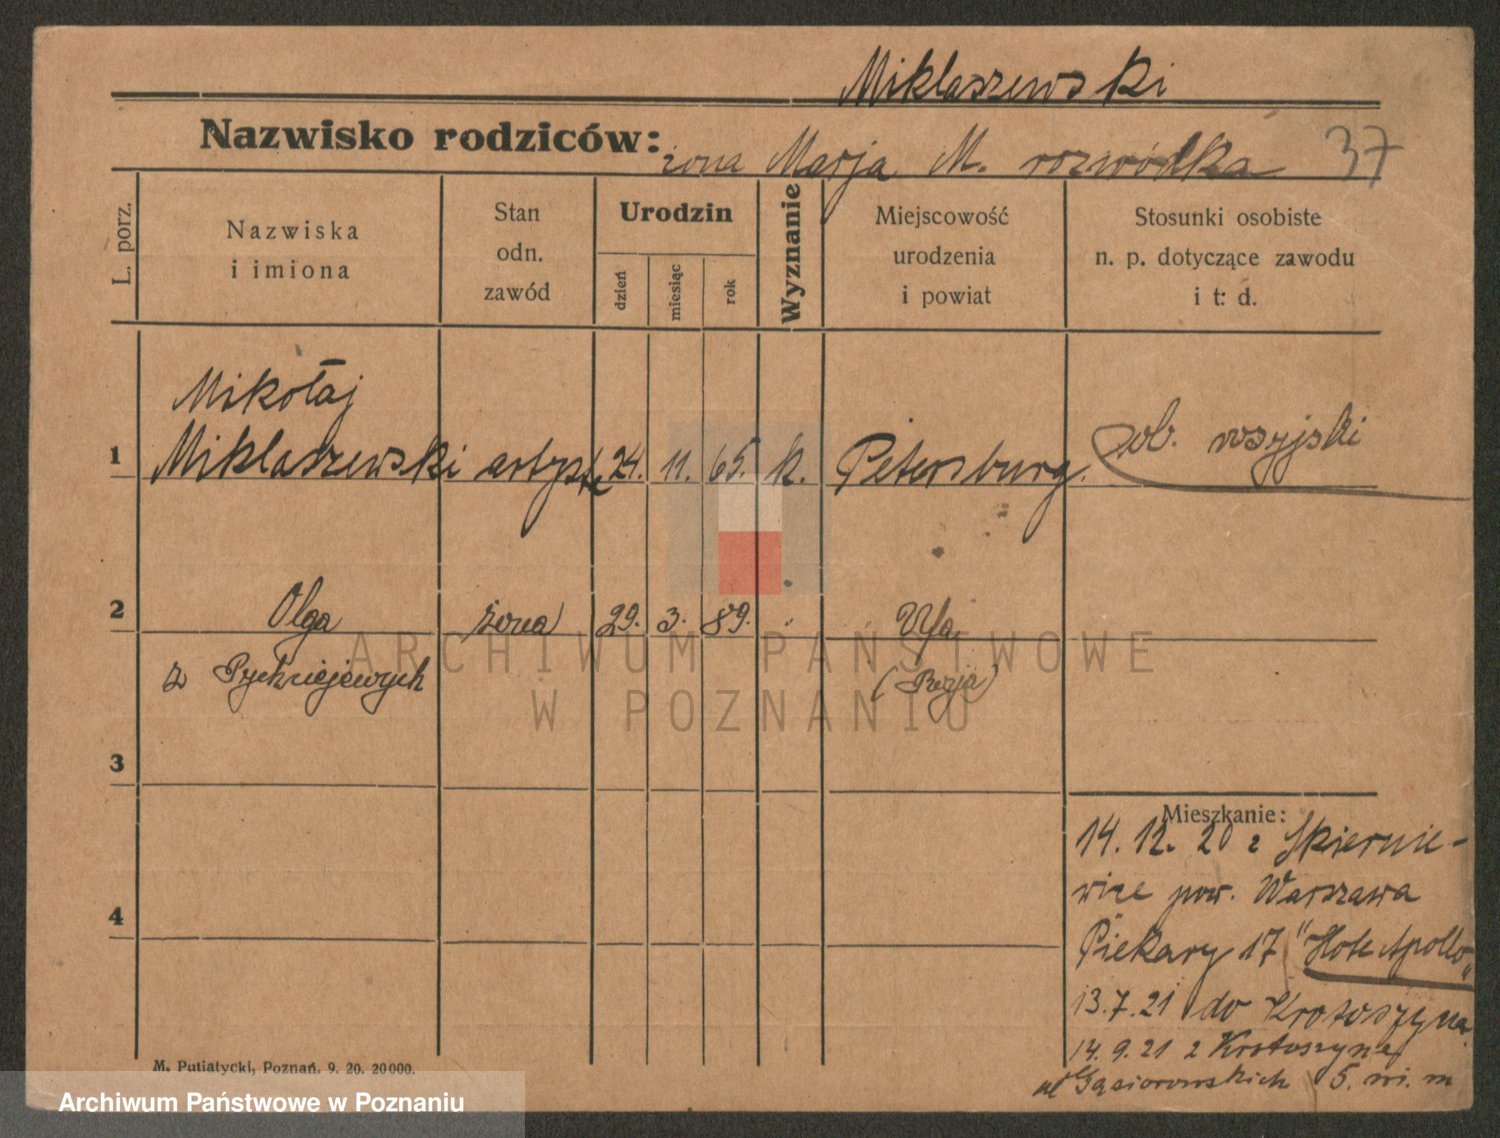 Miklaszewski
Nazwisko rodziców: żona Marja M. rozwódka 37
L. porz.
Nazwiska
i imiona
Stan
odn.
zawód
Urodzin
dzień
miesiąc
rok
Wyznanie
Miejscowość
urodzenia
i powiat
Stosunki osobiste
n. p. dotyczące zawodu
i t: d.
Mikołaj
1 Miklaszewski artysta 24. 11. 65. k. Petersburg. ob. rosyjski
2 Olga żona 29. 3. 89. " Ufa
z (Rosja)
3
4
Mieszkanie:
14. 12. 20 z Skiernie-
wice pow. Warszawa
Piekary 17 "Hote Apollo"
13.7.21 do Krotoszyna
14.9.21 z Krotoszyna
ul Gąsiorowskich 5. m. m
M. Putiatycki, Poznań. 9. 20. 20000.
ARCHIWUM PAŃSTWOWE
W POZNANIU
Archiwum Państwowe w Poznaniu